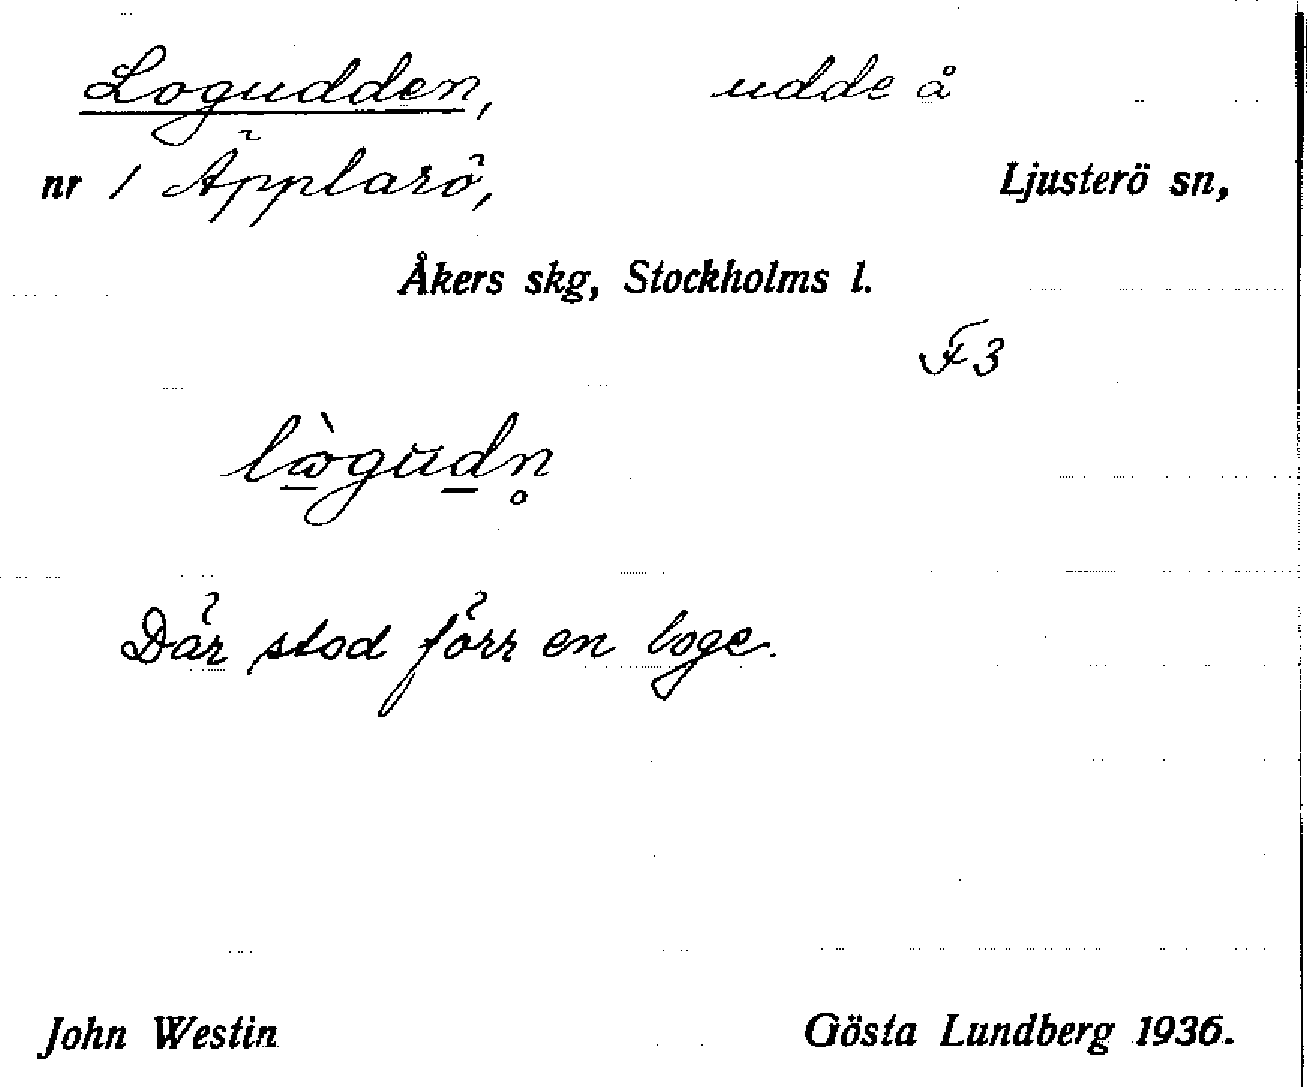 Logudden, udde å
nr 1 Äpplarö, Ljusterö sn,
Åkers skg, Stockholms l.
F3
Där stod förr en loge.
John Westin Gösta Lundberg 1936.